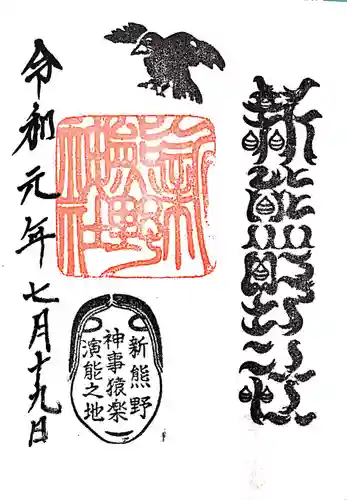 新熊野神社
新熊野神社
新熊野
神事猿楽
演能之地
令和元年七月十九日